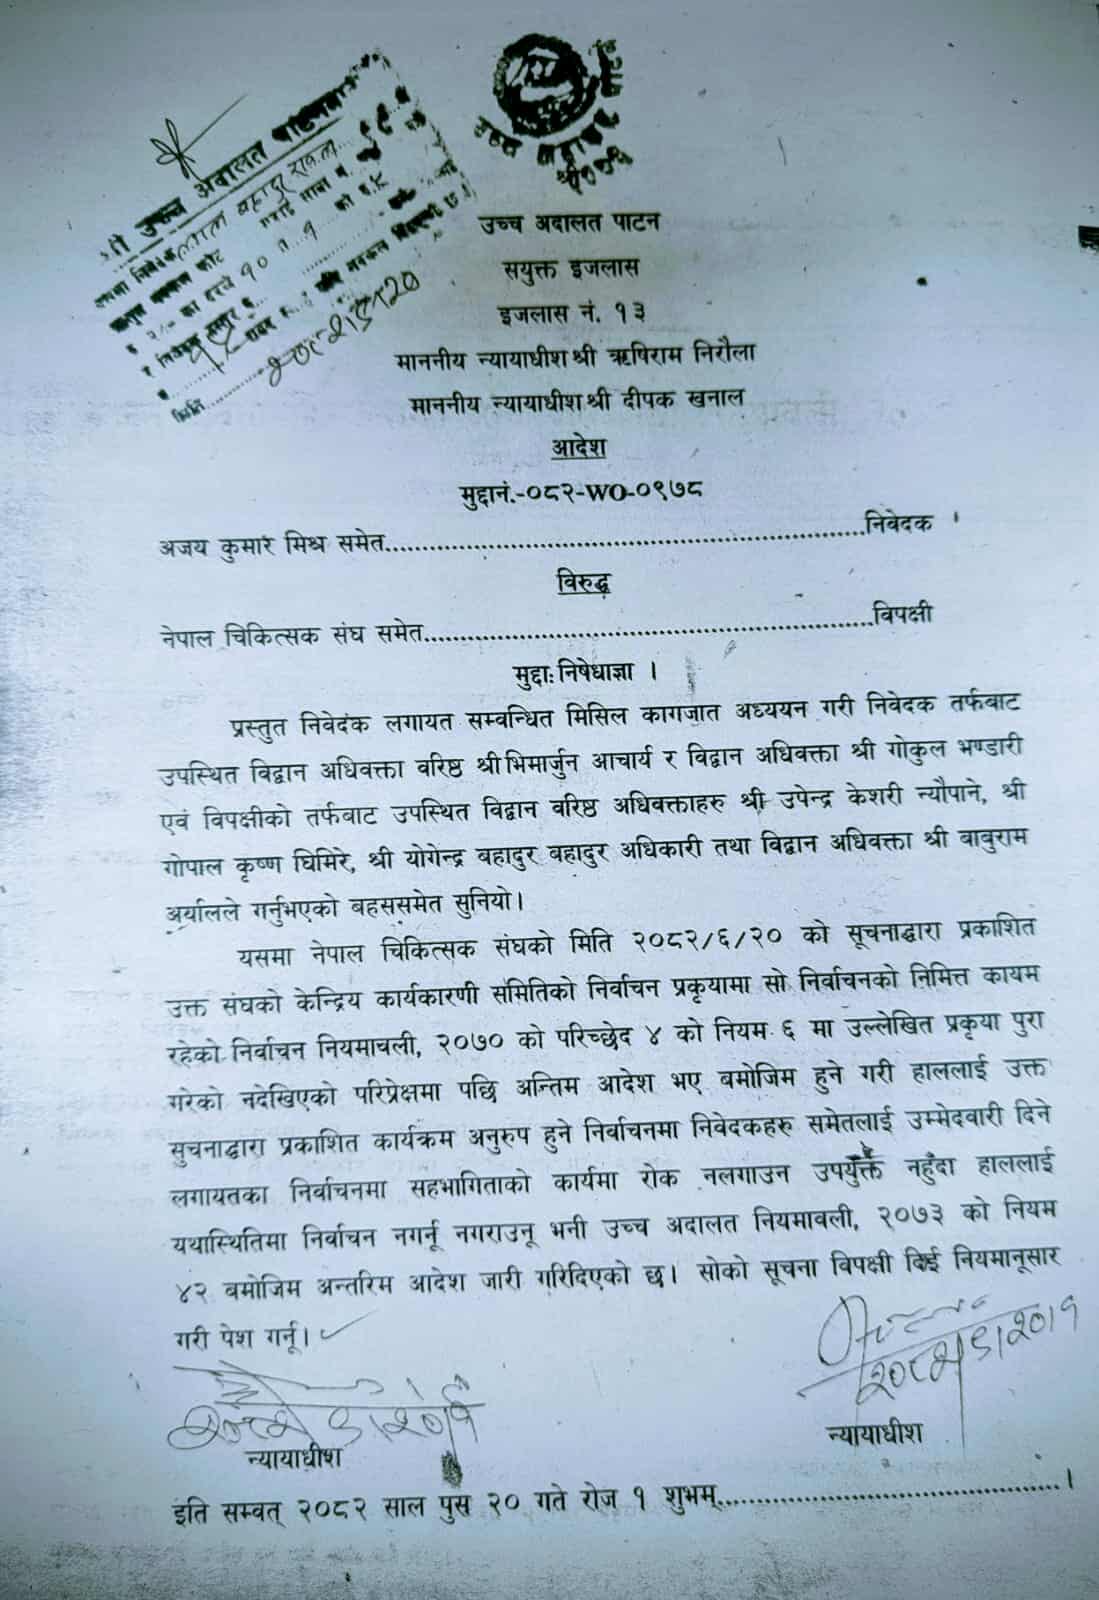 उच्च अदालत पाटन
सयुक्त इजलास
इजलास नं. १३
माननीय न्यायाधीश श्री ऋषिराम निरौला
माननीय न्यायाधीश श्री दीपक खनाल
आदेश
मुद्दानं.-०८२-WO-०९७८
अजय कुमार मिश्र समेत..........................................................निवेदक ।
विरुद्ध
नेपाल चिकित्सक संघ समेत.......................................................विपक्षी
मुद्दा: निषेधाज्ञा ।
प्रस्तुत निवेदक लगायत सम्वन्धित मिसिल कागजात अध्ययन गरी निवेदक तर्फबाट
उपस्थित विद्वान अधिवक्ता वरिष्ठ श्री भिमार्जुन आचार्य र विद्वान अधिवक्ता श्री गोकुल भण्डारी
एवं विपक्षीको तर्फबाट उपस्थित विद्वान वरिष्ठ अधिवक्ताहरु श्री उपेन्द्र केशरी न्यौपाने, श्री
गोपाल कृष्ण घिमिरे, श्री योगेन्द्र बहादुर बहादुर अधिकारी तथा विद्वान अधिवक्ता श्री बाबुराम
अर्यालले गर्नुभएको बहससमेत सुनियो।
यसमा नेपाल चिकित्सक संघको मिति २०८२/६/२० को सूचनाद्वारा प्रकाशित
उक्त संघको केन्द्रिय कार्यकारणी समितिको निर्वाचन प्रकृयामा सो निर्वाचनको निमित्त कायम
रहेको निर्वाचन नियमावली, २०७० को परिच्छेद ४ को नियम ६ मा उल्लेखित प्रकृया पुरा
गरेको नदेखिएको परिप्रेक्षमा पछि अन्तिम आदेश भए बमोजिम हुने गरी हाललाई उक्त
सुचनाद्वारा प्रकाशित कार्यक्रम अनुरुप हुने निर्वाचनमा निवेदकहरु समेतलाई उम्मेदवारी दिने
लगायतका निर्वाचनमा सहभागिताको कार्यमा रोक नलगाउन उपर्युक्त नहुँदा हाललाई
यथास्थितिमा निर्वाचन नगर्नू नगराउनू भनी उच्च अदालत नियमावली, २०७३ को नियम
४२ बमोजिम अन्तरिम आदेश जारी गरिदिएको छ। सोको सूचना विपक्षी दिई नियमानूसार
गरी पेश गर्नू।
न्यायाधीश
न्यायाधीश
इति सम्वत् २०८२ साल पुस २० गते रोज १ शुभम्..........................................।